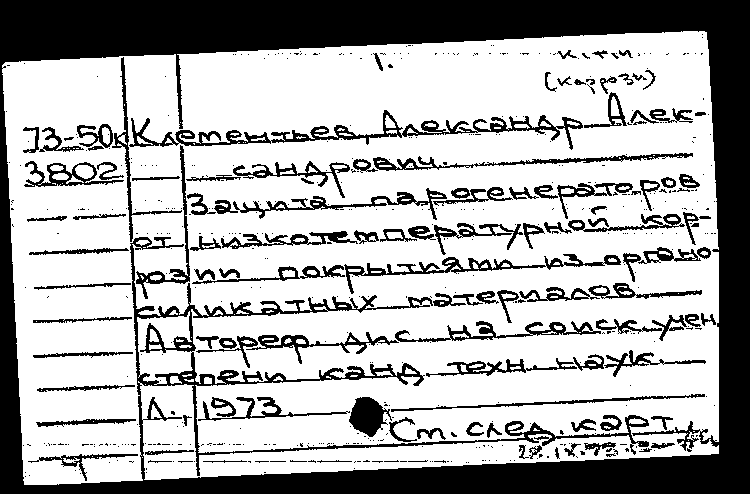 1.
К.т.н.
(Каррози)
73-50к Клементьев, Александр Алек-
3802 сандрович.
Защита парогенераторов
от низкотемпературной кор-
розии покрытиями из органо-
силикатных материалов.
Автореф. дис на соиск. учен.
степени канд. техн. наук.
Л., 1973.
См. след. карт.